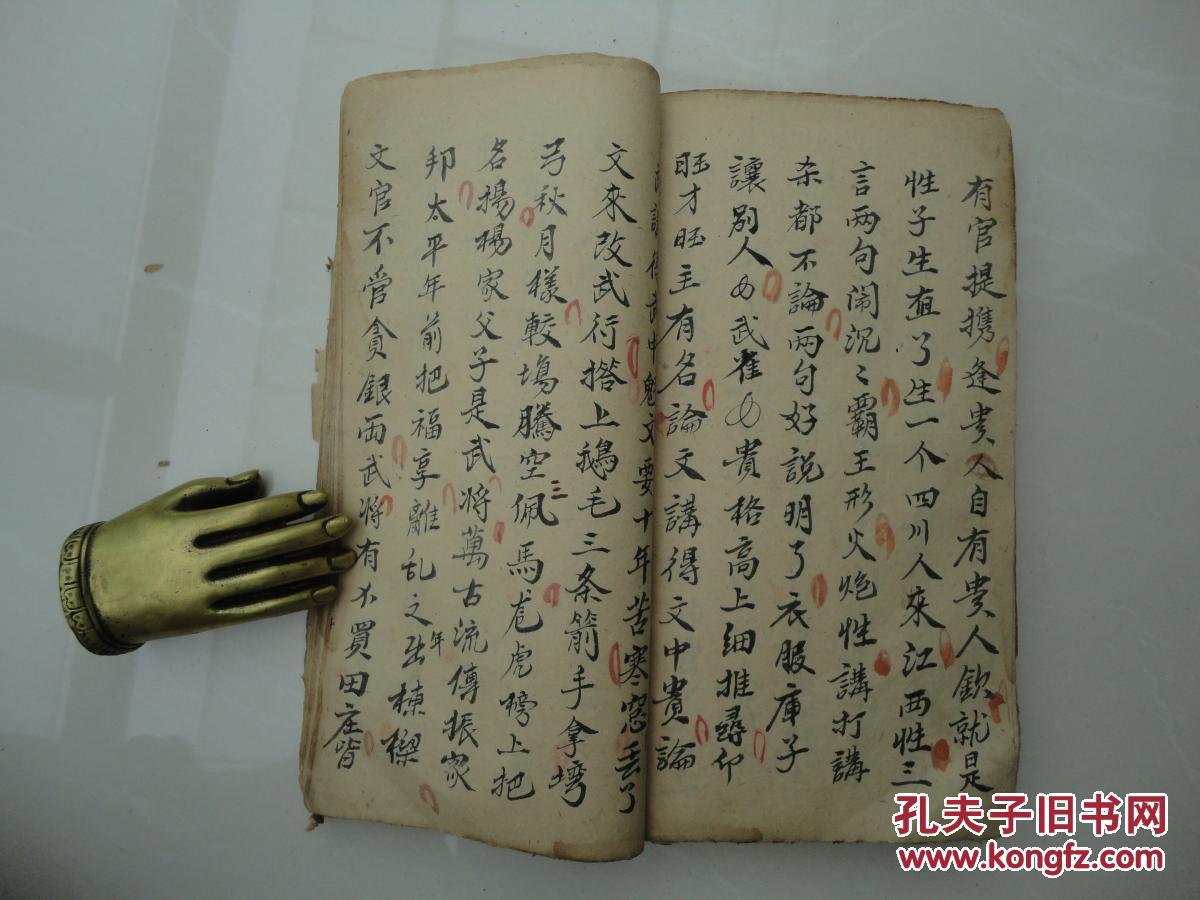 有官提携逢贵人自有贵人欽就是
性子生直了生一个四川人來江西性三
言两句闹沉〻霸王形火炮性講打講
杀都不論两句好説明了衣服庫子
讓别人必武雀必貴格高上细推尋仰
旺才旺主有名論文講得文中貴論
武講得武中魁文要十年苦寒窓丢了
文來改武行撘上鵝毛三条箭手拿塆
弓秋月樣較塲騰空佩馬虎虎榜上把
三
名揚楊家父子是武将萬古流傳振家
邦太平年前把福享離乱之年出棟樑
文官不愛貪銀両武将有不買田庄皆
孔夫子旧书网
www.kongfz.com